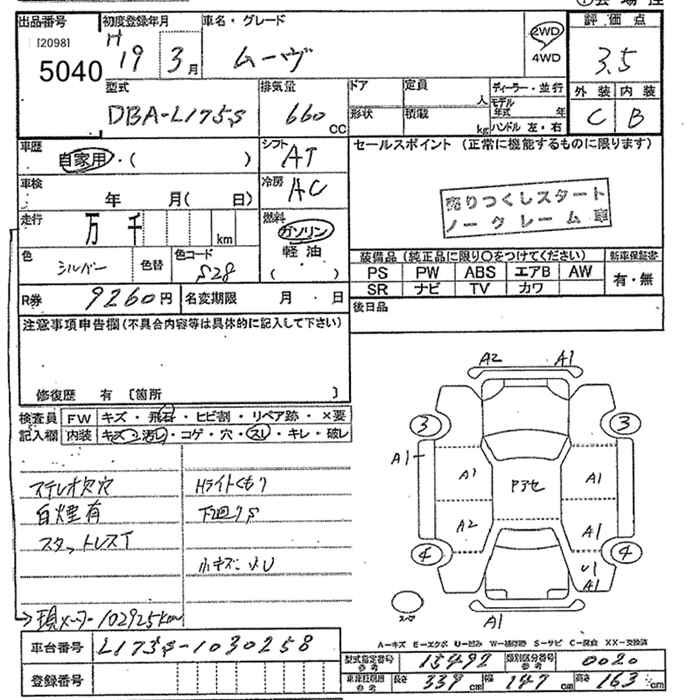 出品番号 初度登録年月 車名・グレード 2WD 評価点
[2098] H 4WD
5040 19 3月 ムーヴ 3.5
型式 排気量 ドア 定員 ディーラー・並行 外装 内装
DBA-L175S 660 CC 形状 積載 人 kg モデル年式 年 ハンドル 左・右 C B
車歴 シフト セールスポイント (正常に機能するものに限ります)
自家用・( ) AT
車検 冷房 売りつくしスタート
年 月( 日) AC ノークレーム車
走行 燃料
万 千 km ガソリン
色 色替 色コード 軽油 装備品 (純正品に限り○をつけてください) 新車保証書
シルバー S28 ( ) PS PW ABS エアB AW 有・無
R券 9260円 名変期限 月・日 SR ナビ TV カワ
注意事項申告欄(不具合内容等は具体的に記入して下さい) 後日品
修復歴 有 [箇所 ]
検査員 FW キズ・飛石・ヒビ割・リペア跡・×要
記入欄 内装 キズ・汚レ・コゲ・穴・スレ・キレ・破レ
A2 A1
3 3
A1 A1 アラセ A1
A2 A1
4 4 U1
A1
A1
ステレオ欠穴 Hライトくもり
白煙有 下廻りS
スタットレスT
小キズ・メU
現メーター102925km
車台番号 L175S-1030258
登録番号
A-キズ E-エクボ U-凹み W-補修跡 S-サビ C-腐食 XX-交換済
型式指定番号 参考 15492 類別区分番号 参考 0020
車検証寸法 参考 長さ 339cm 幅 147cm 高さ 163cm